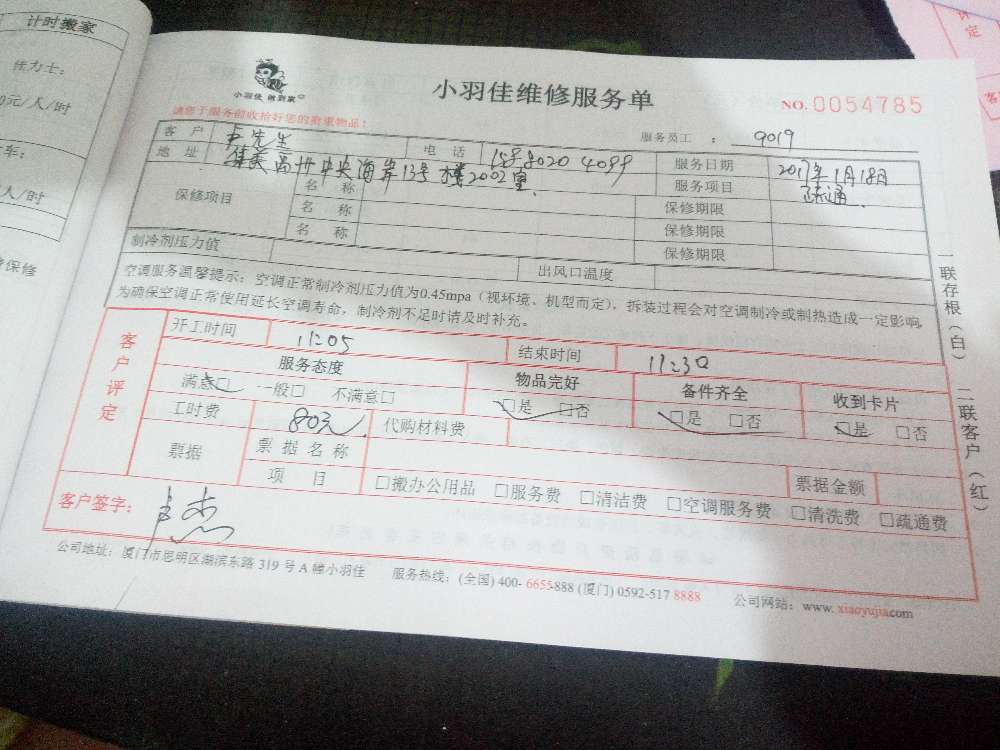 计时搬家
佳力士：
0元/人/时
车：
人/时
保修
评
定
小羽佳 做到家
小羽佳维修服务单
NO.0054785
请您于服务前收拾好您的贵重物品！
服务员工 ： 9019
客 户 卢先生 电 话 服务日期 2017年1月18日
地 址 中央海岸13号楼2002室 服务项目 疏通
保修项目 名 称 保修期限
名 称 保修期限
名 称 保修期限
制冷剂压力值 出风口温度
空调服务温馨提示：空调正常制冷剂压力值为0.45mpa（视环境、机型而定），拆装过程会对空调制冷或制热造成一定影响，
为确保空调正常使用延长空调寿命，制冷剂不足时请及时补充。
客户评定
开工时间 11:05 结束时间 11:30
服务态度 物品完好 备件齐全 收到卡片
满意□ 一般□ 不满意□ □是 □否 □是 □否 □是 □否
工时费 80元. 代购材料费
票据 票 据 名 称 票据金额
项 目 □搬办公用品 □服务费 □清洁费 □空调服务费 □清洗费 □疏通费
客户签字： 卢杰
公司地址：厦门市思明区湖滨东路 319 号 A 幢小羽佳 服务热线：(全国) 400-6655-888 (厦门) 0592-517 8888 公司网站：www.xiaoyujia.com
一联存根（白） 二联客户（红）